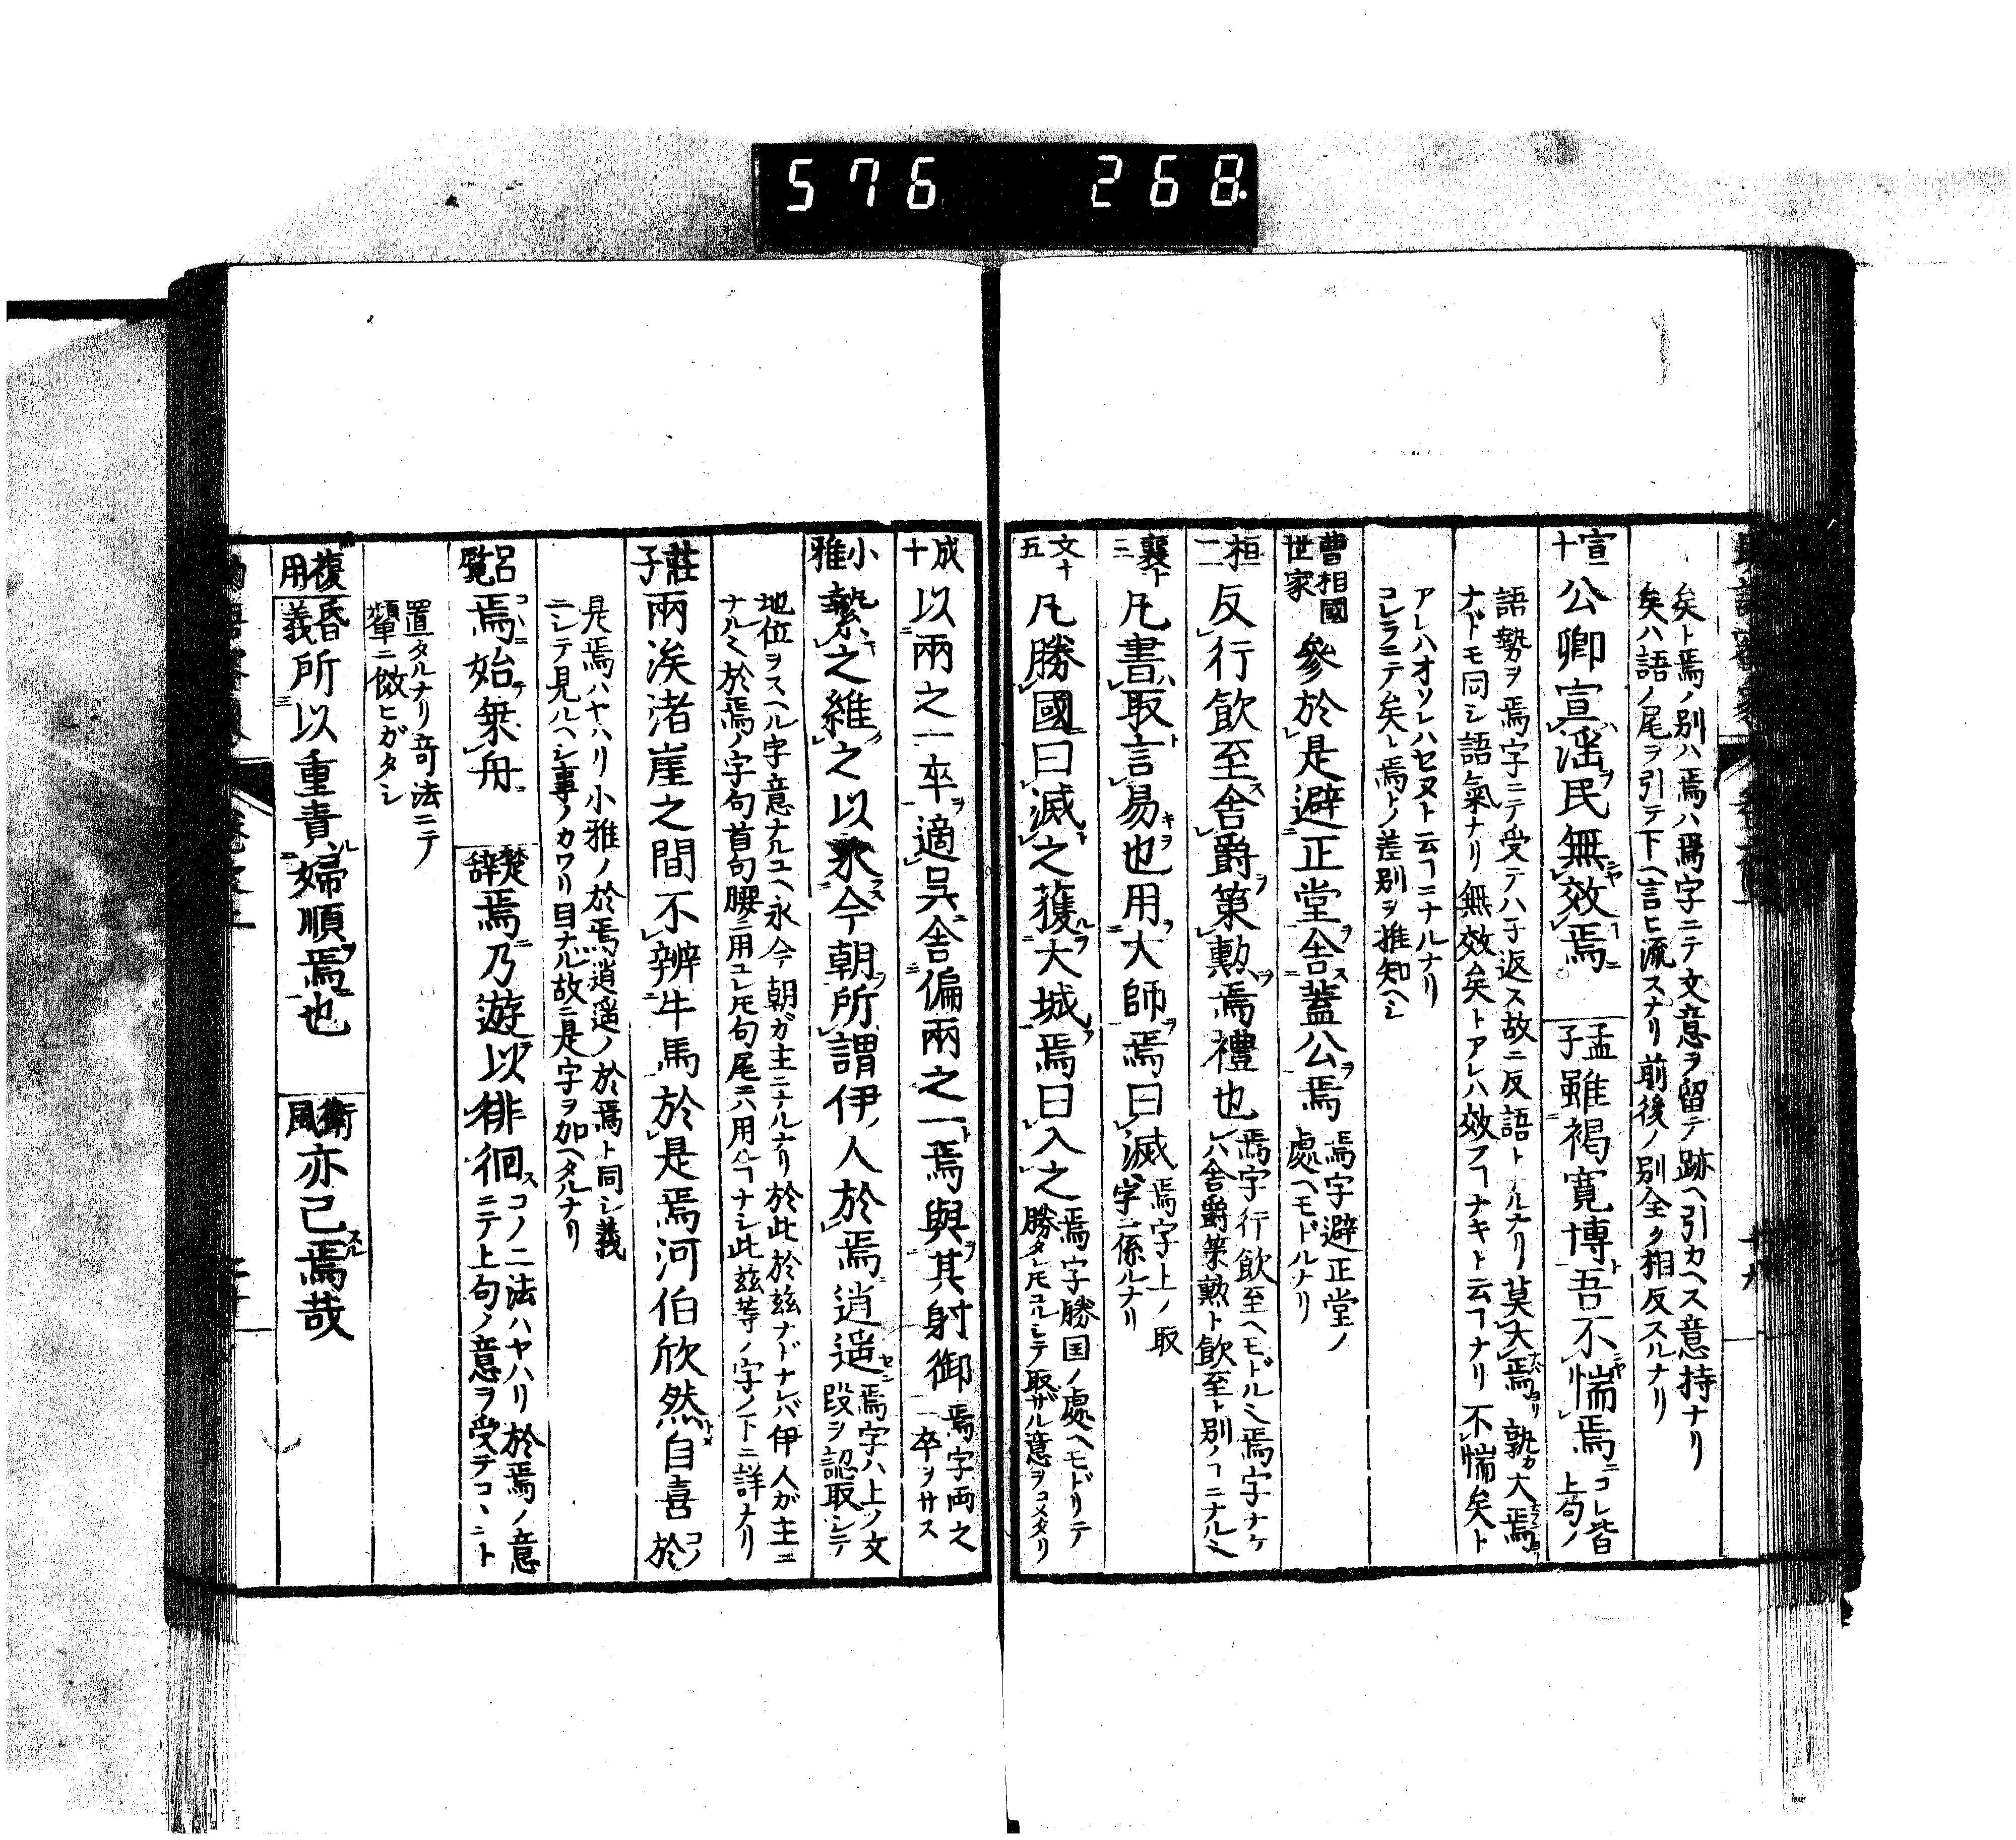 576 268
矣ト焉ノ別ハ焉ハ焉字ニテ文意ヲ留テ跡ヘ引カヘス意持ナリ
矣ハ語ノ尾ヲ引テ下ヘ言ヒ流スナリ前後ノ別全ク相反スルナリ
宣十 公卿宣淫民無效焉 孟子 雖褐寛博吾不惴焉 コレ皆上句ノ
語勢ヲ焉字ニテ受テハ子返ス故ニ反語トナルナリ莫大焉孰カ大焉
ナドモ同シ語氣ナリ無效矣トアレハ效フヿナキト云フナリ不惴矣ト
アレハオソレハセヌト云フヿニナルナリ
コレラニテ矣ト焉トノ差別ヲ推知ヘシ
曹相國世家 參於是避正堂舍蓋公焉 焉字避正堂ノ處ヘモドルナリ
桓二 反行飲至舍爵策勲焉禮也 焉字行飲至ヘモドルミ焉字ナケ
ハ舍爵策勲ト飲至ト別ノヿニナルミ
襄十三 凡書取言易也用大師焉曰滅 焉字上ノ取字ニ係ルナリ
文十五 凡勝國曰滅之獲大城焉曰入之 焉字勝国ノ處ヘモドリテ
勝タレ𪜈コレシテ取ザル意ヲコメタリ
成十 以兩之一卒適吳舍偏兩之一焉與其射御 焉字両之一卒ヲサス
小雅 縶之維之以永今朝所謂伊人於焉逍遥 焉字ハ上ノ文段ヲ認取シテ
地位ヲスヘル字意ナルユヘ永今朝ガ主ニナルナリ於此於茲ナドナレバ伊人ガ主ニ
ナルミ於焉ノ字句首句腰ニ用ユレ𪜈句尾ニハ用ルヿナシ此茲等ノ字ノ下ニ詳ナリ
莊子 兩涘渚崖之間不辨牛馬於是焉河伯欣然自喜 コノ於
是焉ハヤハリ小雅ノ於焉逍遥ノ於焉ト同シ義
ニシテ見ルヘシ事ノカワリ目ナル故ニ是字ヲ加ヘタルナリ
呂覧 焉始乗舟 楚辞 焉乃遊以徘徊 コノ二法ハヤハリ於焉ノ意
ニテ上句ノ意ヲ受テコヽニト
置タルナリ竒法ニテ
類軍ニ倣ヒガタシ
複用 昏義 所以重責婦順焉也 衛風 亦已焉哉